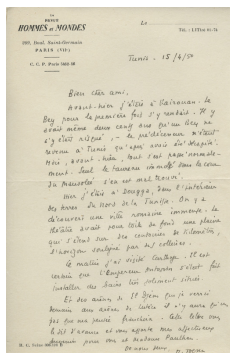 LA REVUE
HOMMES et MONDES
Le
TÉL. : LITtré 01-74
229, Boul. Saint-Germain
PARIS (VIIe)
C. C. P. Paris
Tunis 15/4/50
Bien cher ami,
Avant-hier j'étais à Kairouan. Le
Bey pour la première fois s'y rendait. Il y
avait même deux cents ans qu'un Bey ne
s'y était risqué, le prédécesseur n'était
revenu à Tunis qu'après avoir été
Mais, avant-hier, tout s'est passé normale-
ment. Seul le taureau dans la cour
du Mausolée s'en est mal trouvé.
Hier j'étais à Dougga, dans l'intérieur
des terres du Nord de la Tunisie. On y a
découvert une ville romaine immense. Le
théâtre avait pour toile de fond une plaine
qui s'étend sur des centaines de kilomètres,
l'horizon souligné par des collines.
Ce matin j'ai visité Carthage. Il est
certain que l'Empereur Antonin s'était fait
installer des bains très joliment situés.
Et des arènes de El Djem que je verrai
demain aux arènes de il n'y aura qu'un
pas que ma pensée franchira. Cela selon vous
le dit d'avance et vous apporte mes affectueux
pour vous et Madame
De tout cœur,